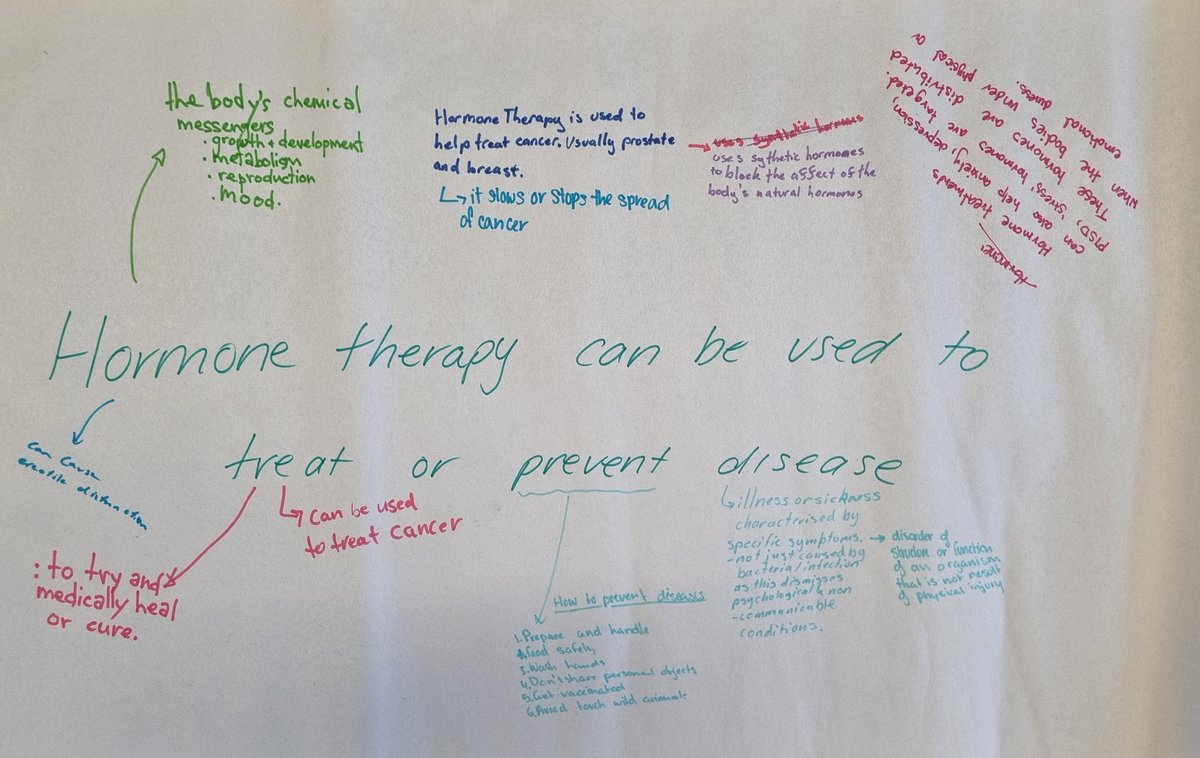 the body's chemical
messengers
• growth + development
• metabolism
• reproduction
• mood.
Hormone Therapy is used to
help treat cancer. Usually prostate
and breast.
↳ it slows or stops the spread
of cancer
→ uses synthetic hormones
uses sythetic hormones
to block the affect of the
body's natural hormones
Hormone
Hormone treatments
can also help anxiety, depression,
PTSD, stress, hormones are targeted.
These hormones are distributed
when the bodies under physical or
emotional
Hormone therapy can be used to
treat or prevent disease
can cause
erectile
: to try and
medically heal
or cure.
↳ can be used
to treat cancer
How to prevent diseases
1. Prepare and handle
food safely
3. Wash hands
4. Don't share personal objects
5. Get vaccinated
6. Avoid touch wild animals
↳ illness or sickness
characterised by
specific symptoms.
- not just caused by
bacteria/infection
as this dismisses
psychological & non
-communicable
conditions.
→ disorder of
structure or function
of an organism
that is not result
of physical injury